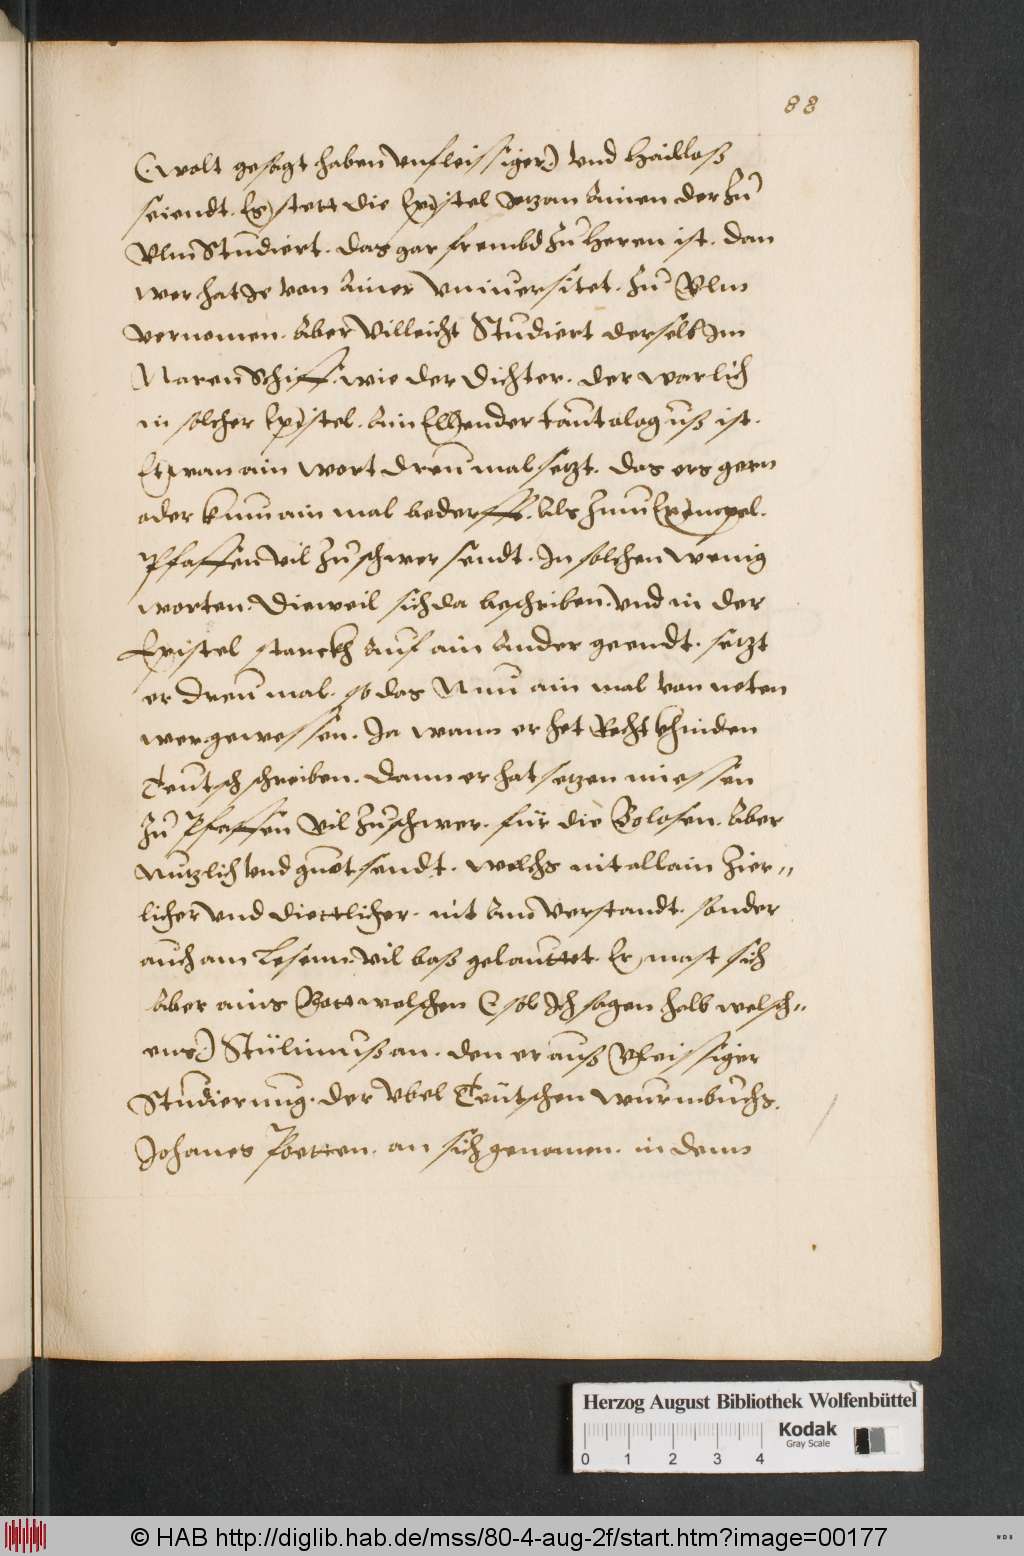 88
(wolt gesagt haben vnfleissiger) vnd hailloß
seiendt. Es stett die Epistel ytzan ainen der zu
Vlm Studiert. das gar frembd zu heren ist. dan
wer hat Je von ainer vniuersitet. zu Vlm
vernomen. aber Villeicht Studiert derselb Im
Naren Schiff. wie der dichter. der warlich
in solcher Epistel. ain Ellender tautalogus ist.
Etwan ain wort dreu mal setzt. das ers gern
oder kum ain mal bederff. als zum Exempel.
Pfaffen vil zu schwer sendt. In solchen wenig
worten. Dieweil sich da beschriben. vnd in der
Epistel starckh auf ain ander geendt. setzt
er dreu mal. so das Nun ain mal von neten
wer gewessen. Ja wann er het Recht khinden
Teutsch schreiben. dann er hat setzen miessen
zu Pfaffen Vil zu schwer. für die Bolosen. aber
Nutzlich vnd guot sendt. welchs nit allain zier-
licher vnd diettlicher. nit am verstandt. sonder
auch am lesenn. Vil baß gelauttet. Er mast sich
aber ains Bettwelschen (sol Ich sagen halb welsch-
ens) Stülimuß an. den er auß Vleissiger
Studierung. der vbel Teutschen wurmbuchs.
Johanes Poetten. an sich genomen. in dem
Herzog August Bibliothek Wolfenbüttel
Kodak
Gray Scale
0 1 2 3 4
© HAB http://diglib.hab.de/mss/80-4-aug-2f/start.htm?image=00177